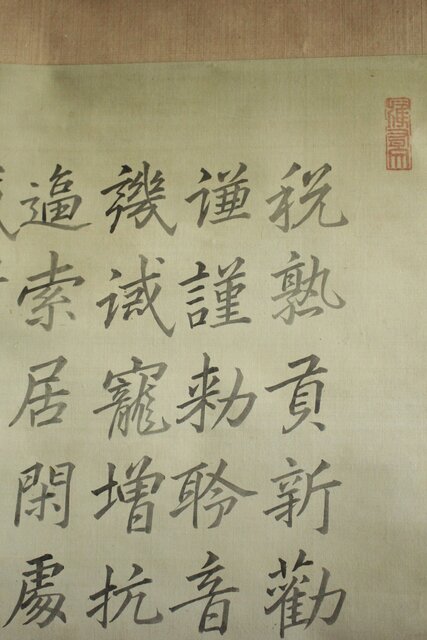 稅熟貢新勸
謙謹勅聆音
譏誡寵增抗
逼索居閑處